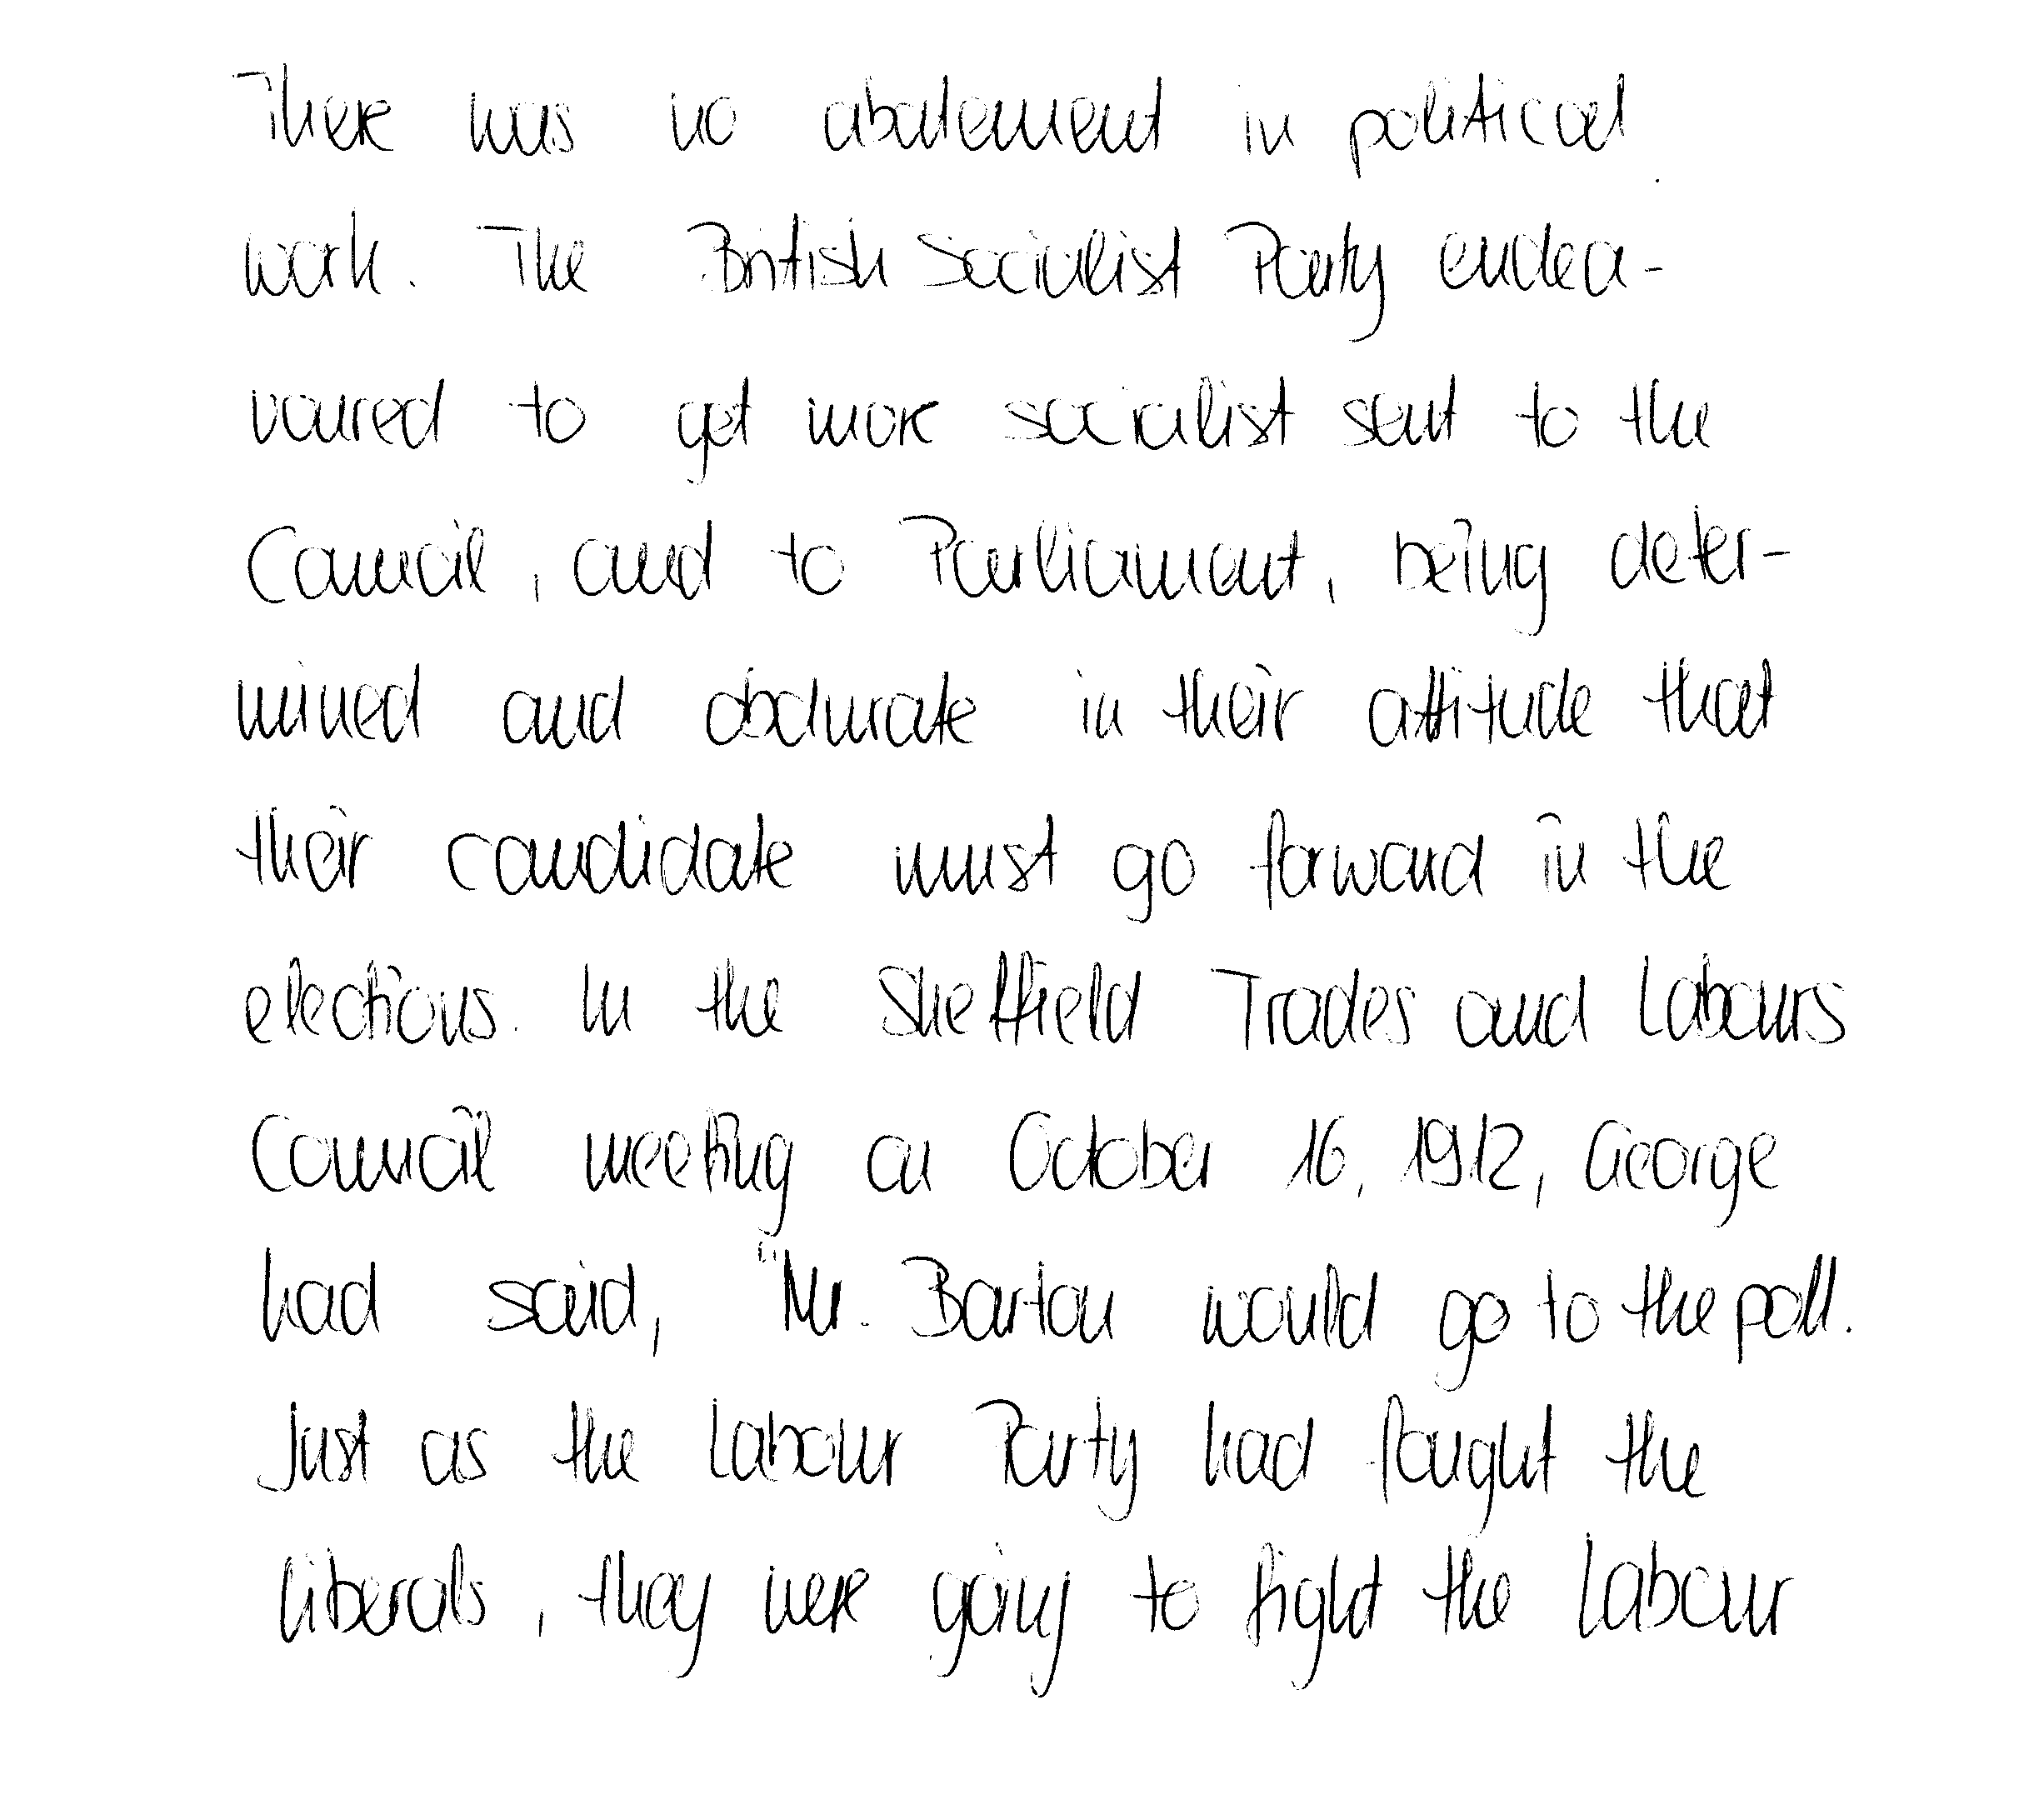 There was no abatement in political
work. The British Socialist Party endea-
voured to get more socialist sent to the
Council, and to Parliament, being deter-
mined and obdurate in their attitude that
their candidate must go forward in the
elections. In the Sheffield Trades and Labours
Council meeting on October 16, 1912, George
had said, "Mr. Barton would go to the poll.
Just as the Labour Party had fought the
liberals, they were going to fight the Labour